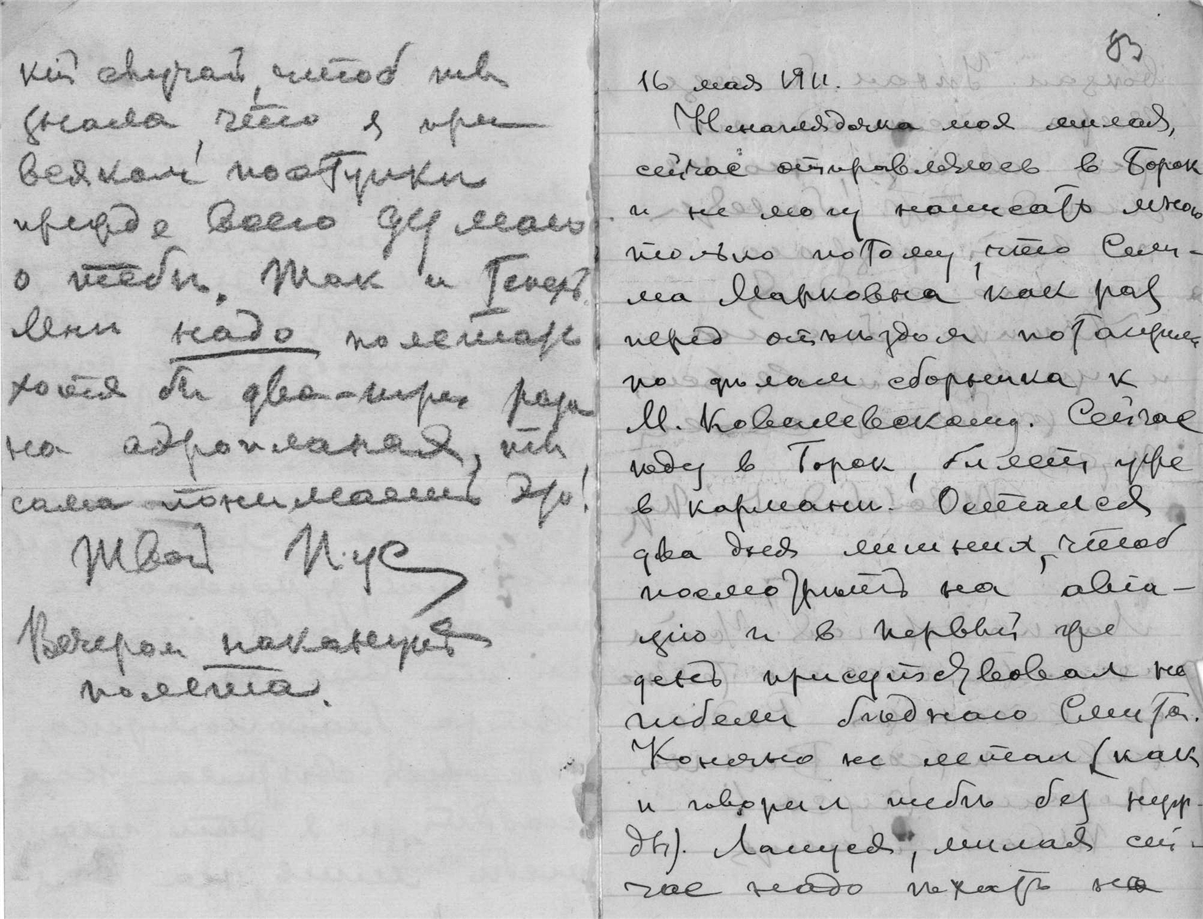 кій случай, чтоб ты
знала, что я при
всяком поступкѣ
прежде всего думаю
о тебѣ. Так и теперь
мнѣ надо полетать
хотя бы два-три раза
на аэропланах, ты
сама понимаешь это!
Твой
Вечером накануне
полета.
83
16 мая 1911.
Ненаглядочка моя милая,
сейчас отправляюсь в Борок
и не могу написать много
только потому, что Сели-
ма Марковна как раз
перед отъѣздом потащила
по дѣлам сборника к
М. Ковалевскому. Сейчас
ѣду в Борок, билет уже
в карманѣ! Остался
два дня лишних, чтоб
посмотрѣть на авіа-
цію и в первый же
день присутствовал на
гибели бѣднаго Смита.
Конечно не летал (как
и говорил тебѣ без нуж-
ды). Лапуся, милая сей-
час надо ѣхать на